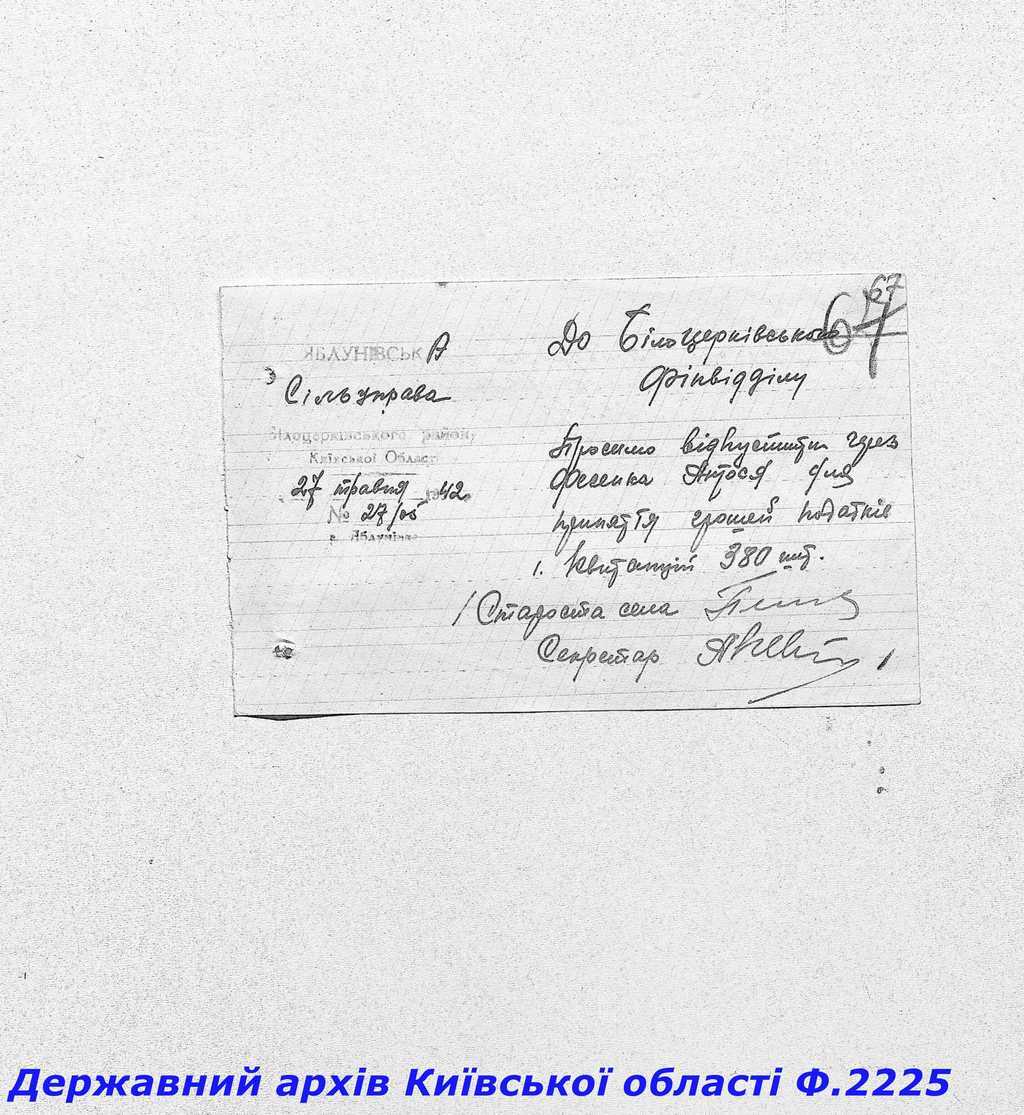 67
67
ЯБЛУНІВСЬКА
Сільуправа
Білоцерківського району
Київської Области
27 травня 1942
№ 27/05
с. Яблунівка
До Білоцерківського
Фінвідділу
Просимо відпустити через
Фесенка Антося для
приняття грошей податків
1. Квитанцій 380 шт.
Староста села
Секретар
Державний архів Київської області Ф.2225